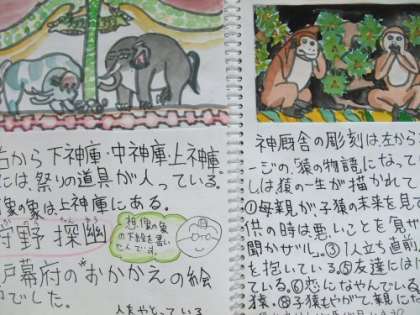 右から下神庫・中神庫上神庫
には、祭りの道具が入っている。
像の象は上神庫にある。
狩野探幽
想像の象
の下絵を書い
たんです。
戸幕府の"おかかえの絵
でした。
神厩舎の彫刻は左から
ージの「猿の物語」になって
しは猿の一生が描かれて
①母親が子猿の未来を見て
供の時は悪いことを「見ザ
聞かザル。③1人立ち直前
を抱いている。⑤友達には
ている。⑥恋になやんでいる
猿。⑧子猿もやがて親に